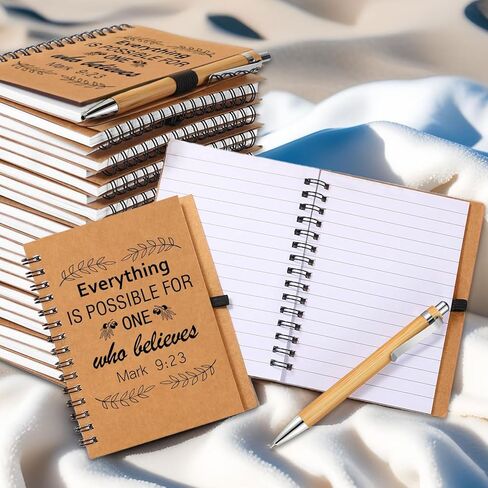 Everything
IS POSSIBLE FOR
ONE
who believes
Mark 9:23
Everything
IS POSSIBLE FOR
ONE
who believes
Mark 9:23